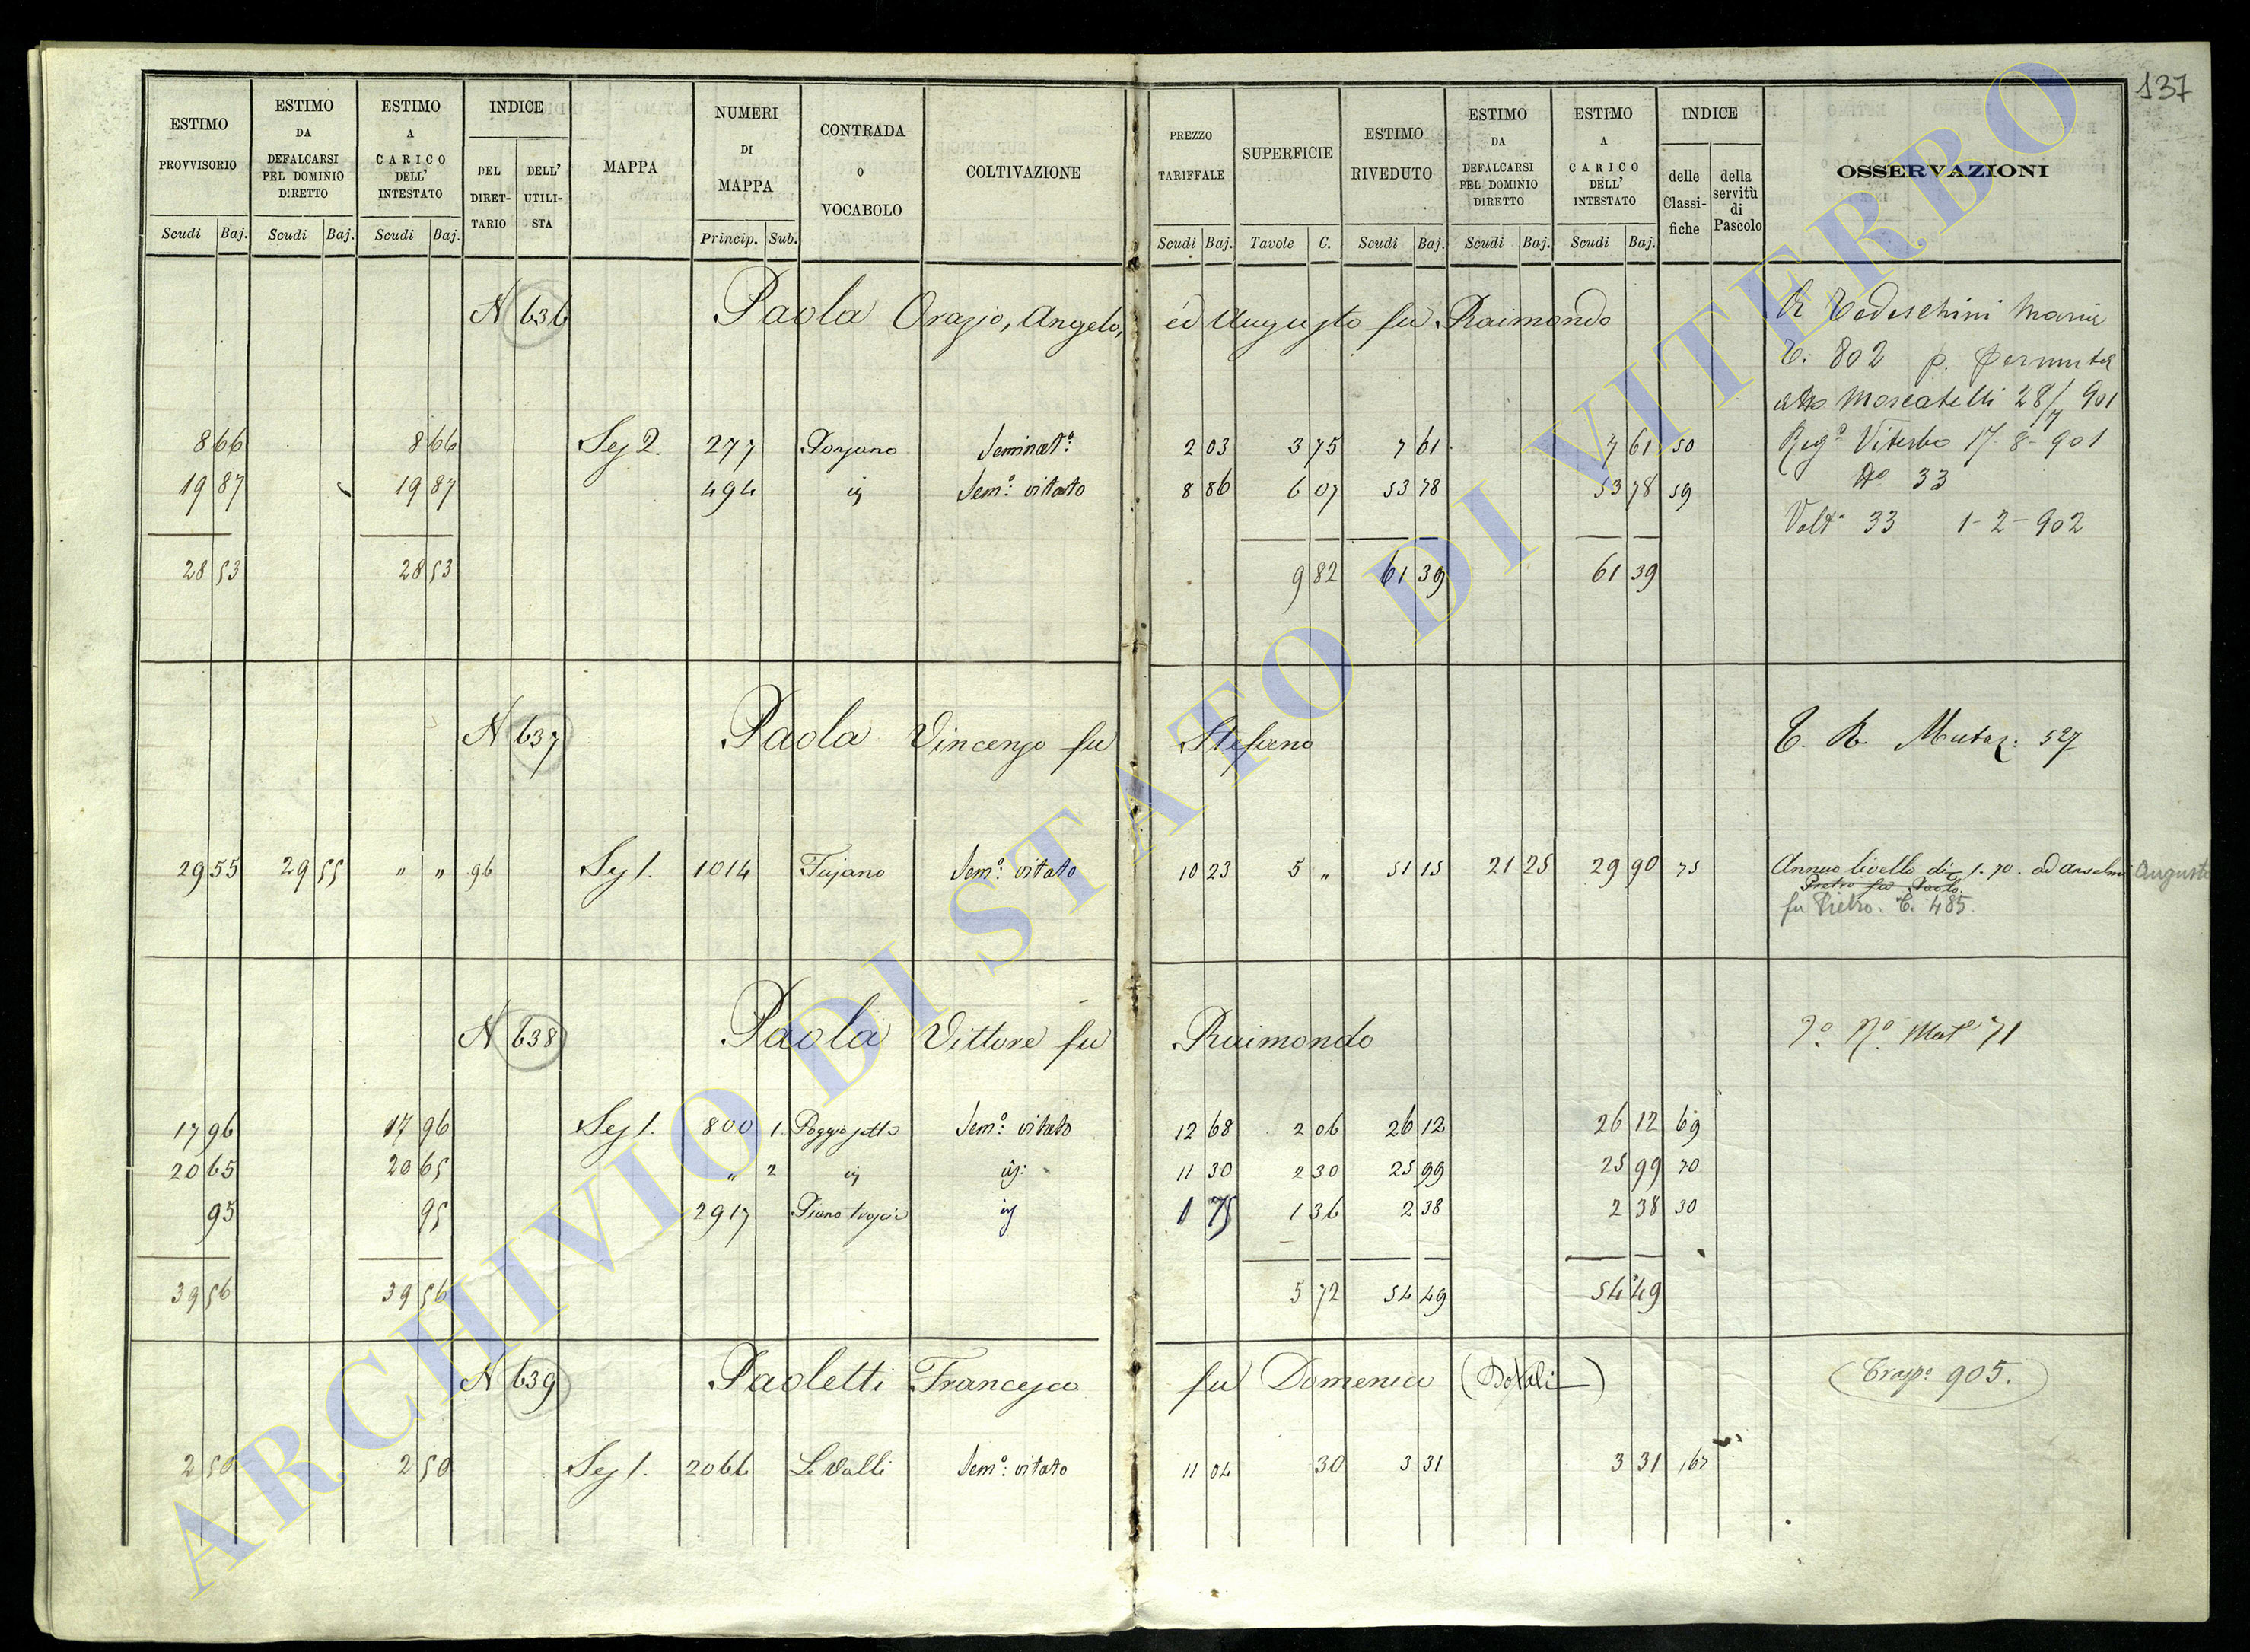 137
ESTIMO PROVVISORIO
ESTIMO DA DEFALCARSI PEL DOMINIO DIRETTO
ESTIMO A CARICO DELL' INTESTATO
INDICE
DEL DIRET-TARIO
DELL' UTILI-STA
MAPPA
NUMERI DI MAPPA
CONTRADA o VOCABOLO
COLTIVAZIONE
PREZZO TARIFFALE
SUPERFICIE
ESTIMO RIVEDUTO
ESTIMO DA DEFALCARSI PEL DOMINIO DIRETTO
ESTIMO A CARICO DELL' INTESTATO
INDICE
delle Classi-fiche
della servitù di Pascolo
OSSERVAZIONI
Scudi Baj. Scudi Baj. Scudi Baj. Princip. Sub. Scudi Baj. Tavole C. Scudi Baj. Scudi Baj. Scudi Baj.
N 636 Paola Orazio, Angelo, ed Augusto fu Raimondo
A Tedeschini Maria
T. 802 p. permuta
Moscatelli 28/7 901
8 66 8 66 Sez 2. 277 Seminat°: 2 03 3 75 7 61 7 61 50
Reg° Viterbo 17-8-901
N° 33
19 87 19 87 494 Sem°: vitato 8 86 6 07 53 78 53 78 59
Volt° 33 1-2-902
28 53 28 53 9 82 61 39 61 39
N 637 Paola Vincenzo fu Stefano
C. R. Mutaz: 527
29 55 29 55 " " 96 Sez 1. 1014 Fujano Sem°: vitato 10 23 5 " 51 15 21 25 29 90 75
Annuo livello di 1.70. ad Anselmi Augusto
Pietro fu Paolo.
fu Pietro. C. 485.
N 638 Paola Vittore fu Raimondo
71
17 96 17 96 Sez 1. 800 1 Poggio Sem°: vitato 12 68 2 06 26 12 26 12 69
20 65 20 65 " 2 11 30 2 30 25 99 25 99 70
95 95 2917 Piano 1 75 1 36 2 38 2 38 30
39 56 39 56 5 72 54 49 54 49
N 639 Paoletti Francesco fu Domenico (Dotali)
(Trasp: 905.)
2 50 2 50 Sez 1. 2066 Le Valli Sem°: vitato 11 04 30 3 31 3 31
ARCHIVIO DI STATO DI VITERBO